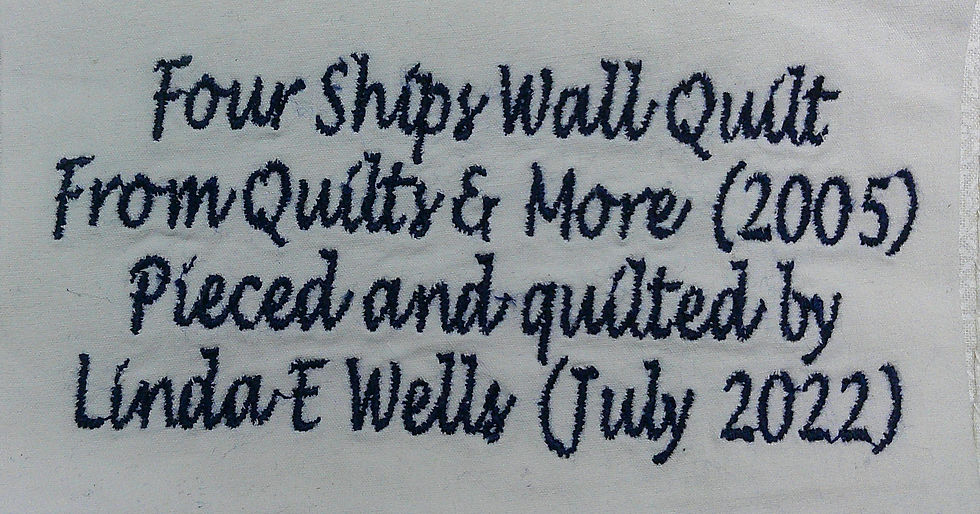 Four Ships Wall Quilt
From Quilts & More (2005)
Pieced and quilted by
Linda E Wells (July 2022)